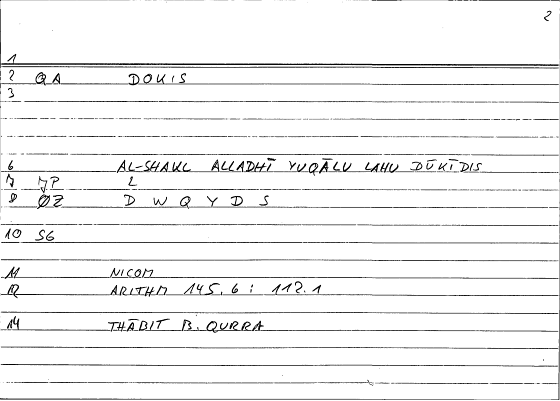 2
1
2 QA DOKIS
3
6 AL-SHAKL ALLADHĪ YUQĀLU LAHU DŪKĪDIS
7 7P 2
8 ØZ D W Q Y D S
10 S6
11 NICOM
12 ARITHM 145.6 : 112.1
14 THĀBIT B. QURRA